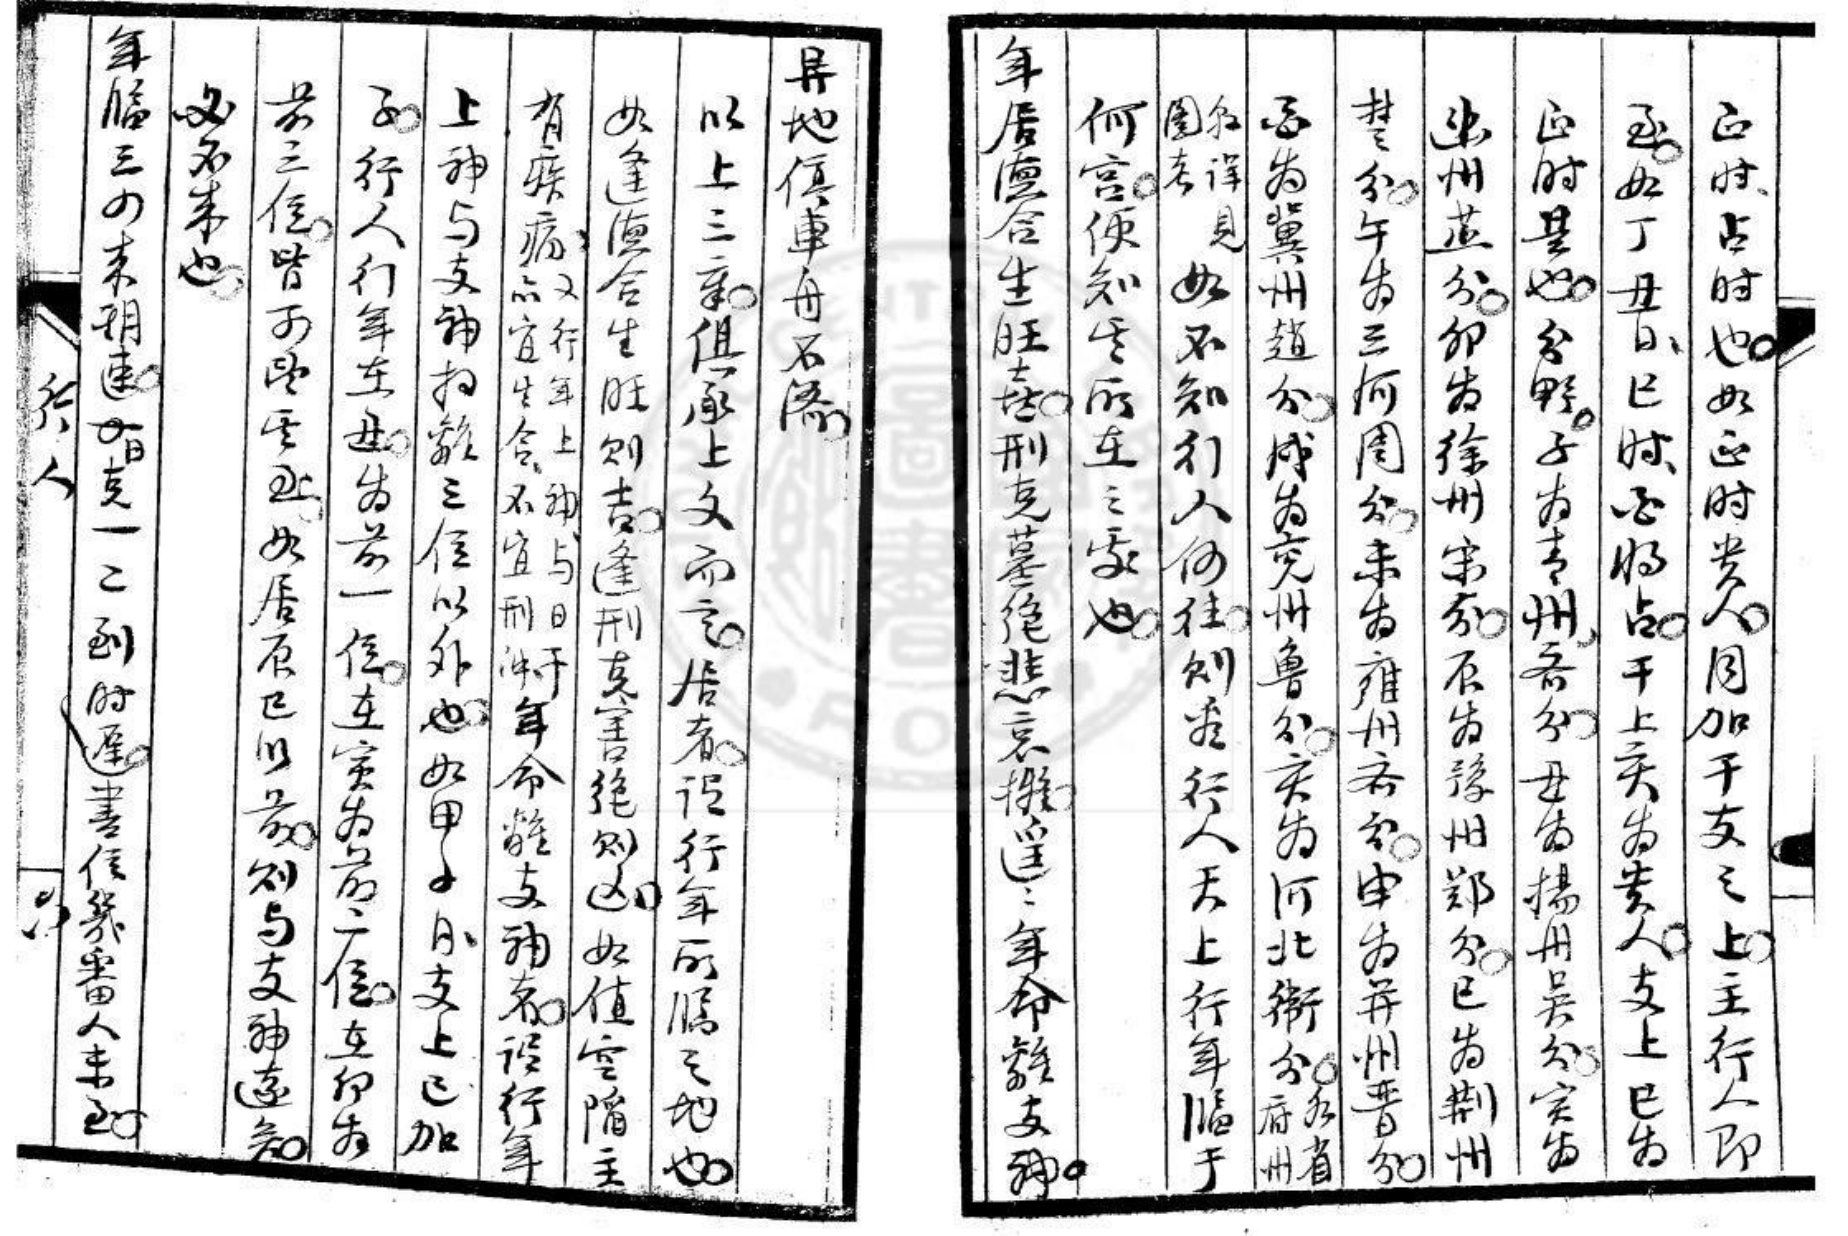 正时、占时也。如正时贵人。同加干支之上。主行人即
至。如丁丑日、巳时、酉将占。干上亥为贵人。支上巳为
正时是也。分野。子为青州、齐分。丑为揚州吴分。寅为
幽州燕分。卯为徐州宋分。辰为豫州郑分。巳为荆州
楚分。午为三河周分。未为雍州秦分。申为并州晋分。
酉为冀州趙分。戌为兖州鲁分。亥为河北衛分。各省府州
分詳見圖考 如不知行人何往。则查行人天上行年临于
何宫。便知其所在之處也。
年居德合生旺喜。刑克墓绝悲哀摧。遥遥年命離支神。
异地俱車舟不济。
以上三章。俱承上文而言。居者。謂行年所临之地也。
如逢德合生旺则吉。逢刑克害绝则凶。如值空陷主
有疾病、又行年上神、与日干亦宜生合、不宜刑冲年命離支神者。謂行年
上神与支神相離三位以外也。如甲子日、支上巳加
子。行人行年在丑。为前一位。在寅为前二位。在卯为
前三位。皆可望其至。如居辰巳以前。则与支神遠。知
必不来也。
年临三四来期速。
行人
一二到时遲。書信幾番人未至。